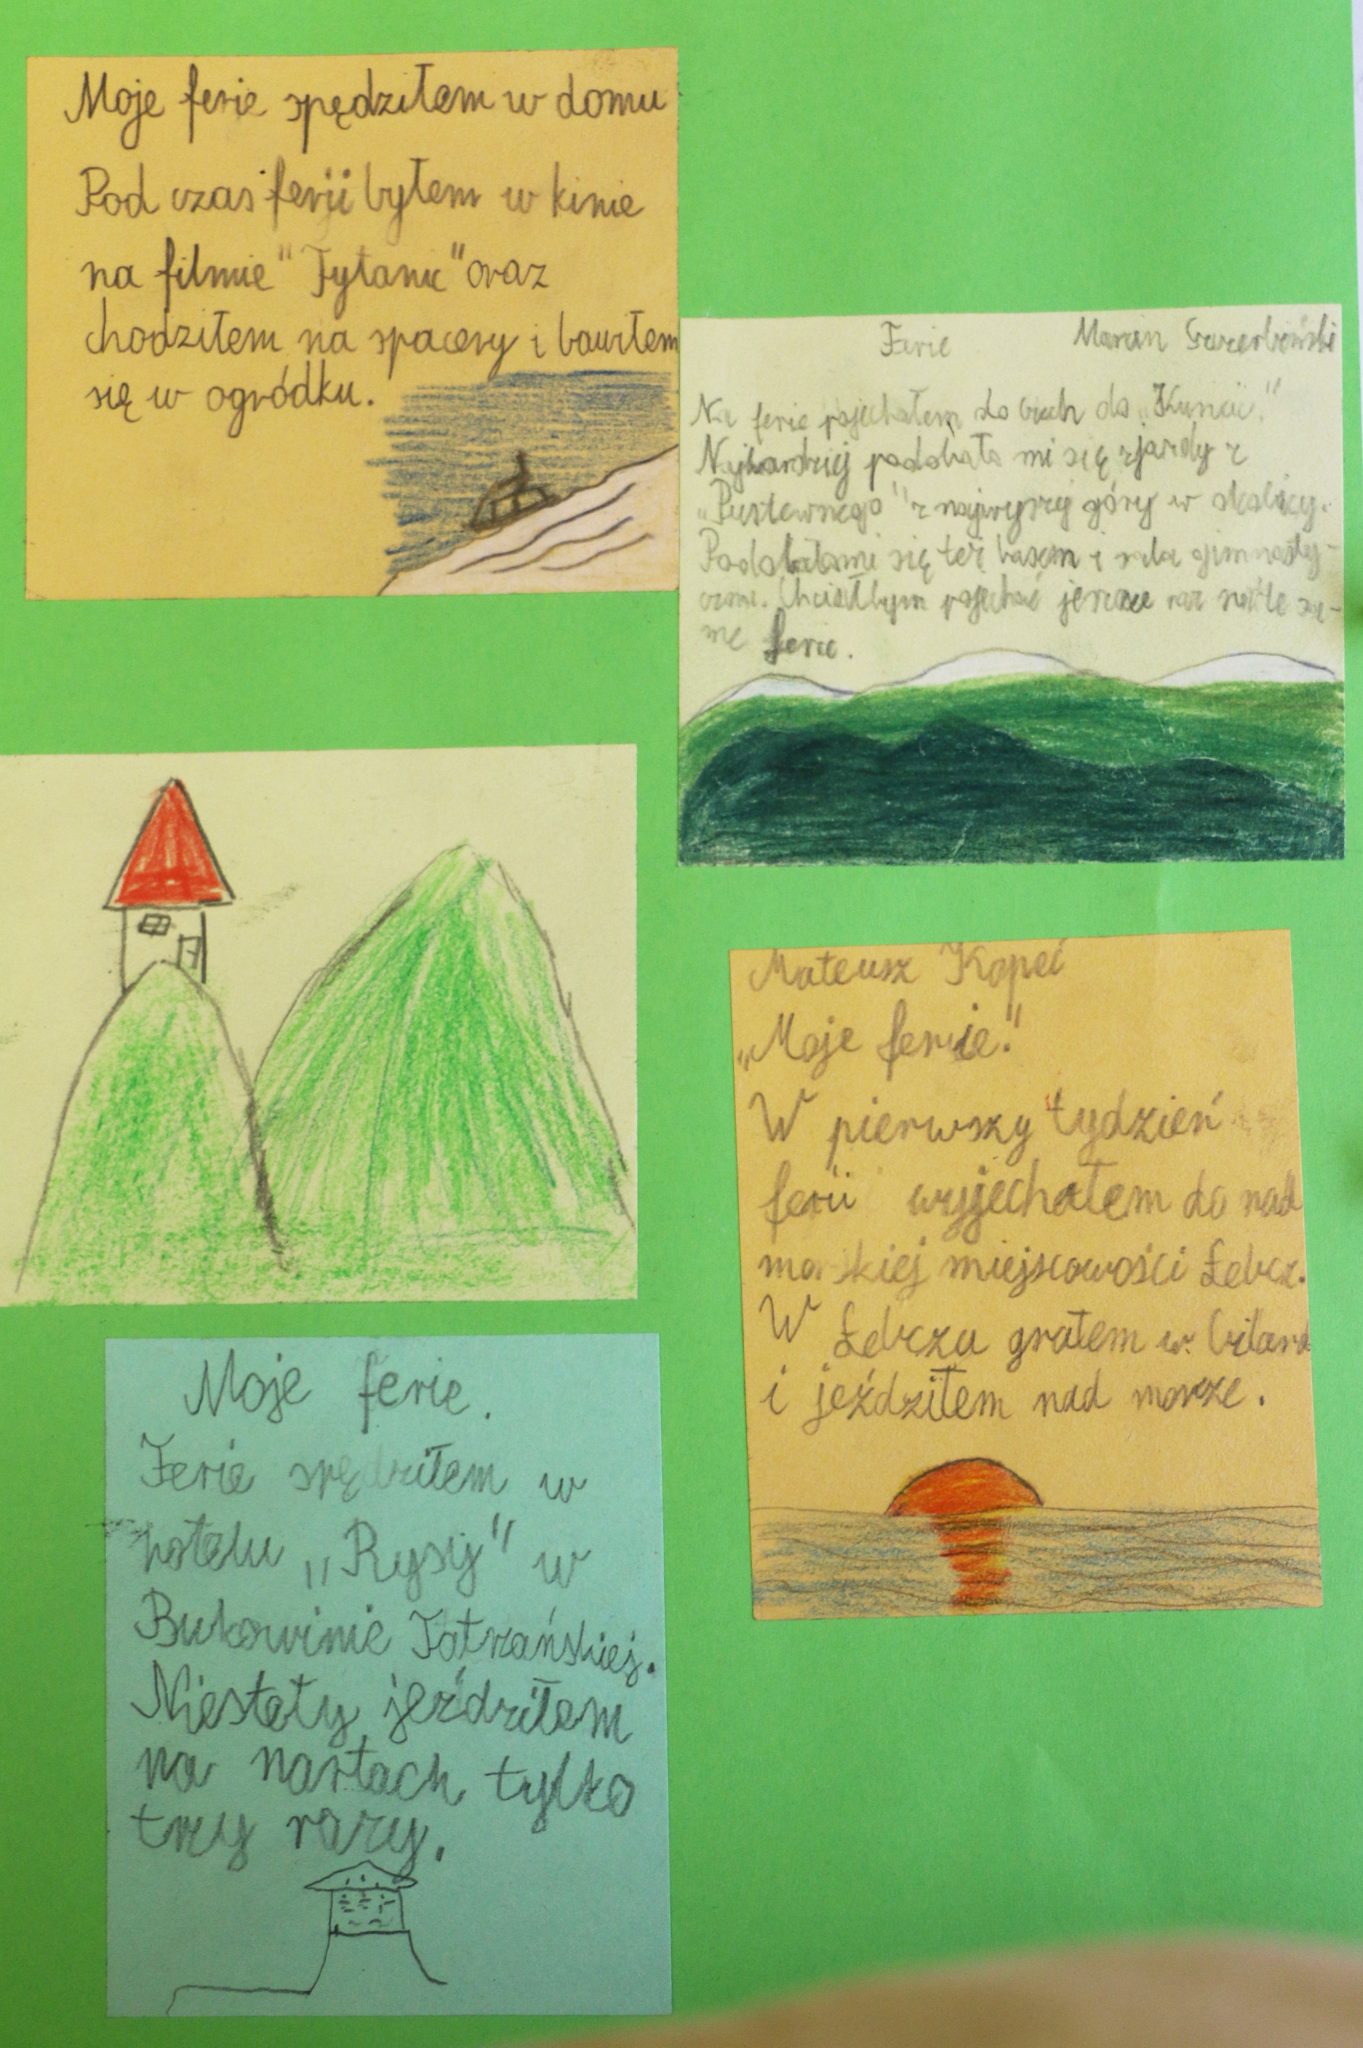 Moje ferie spędziłem w domu
Pod czas ferii byłem w kinie
na filmie "Tytanic" oraz
chodziłem na spacery i bawiłem
się w ogródku.
Ferie Marcin
Na ferie pojechałem do
Najbardziej podobało mi się zjazdy z
"z najwyższej góry w okolicy.
Podobał mi się też basen i sala gimnasty-
czna. Chciałbym pojechać jeszcze raz na te sa-
me ferie.
Mateusz Kopeć
„Moje ferie."
W pierwszy tydzień
ferii wyjechałem do nad
morskiej miejscowości Łebcz.
W Łebczu grałem w bilard
i jeździłem nad morze.
Moje ferie.
Ferie spędziłem w
hotelu „Rysy" w
Bukowinie Tatrzańskiej.
Niestety jeździłem
na nartach tylko
trzy razy.